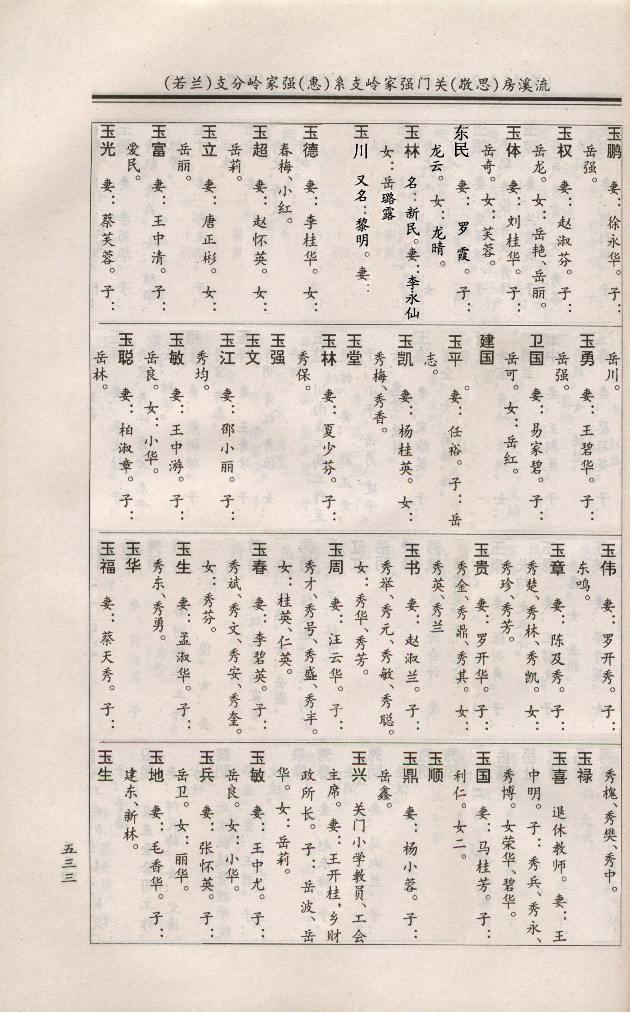 流溪房(思敬)关门强家岭支系(惠)强家岭分支(兰若)
玉鹏　妻：徐永华。子：
岳强。
玉权　妻：赵淑芬。子：
岳龙。女：岳艳、岳丽。
玉体　妻：刘桂华。子：
岳奇。女：芙蓉。
东民　妻：罗　霞。子：
龙云。女：龙晴。
玉林　名：新民。妻：李永仙
女：岳璐露
玉川　又名：黎明。妻：
玉德　妻：李桂华。女：
春梅、小红。
玉超　妻：赵怀英。女：
岳莉。
玉立　妻：唐正彬。女：
岳丽。
玉富　妻：王中清。子：
爱民。
玉光　妻：蔡芙蓉。子：
岳川。
玉勇　妻：王碧华。子：
岳强。
卫国　妻：易家碧。子：
岳可。女：岳红。
建国
玉平　。妻：任裕。子：岳
志。
玉凯　妻：杨桂英。女：
秀梅、秀香。
玉堂
玉林　妻：夏少芬。子：
秀保。
玉强
玉文
玉江　妻：邵小丽。子：
秀均。
玉敏　妻：王中游。子：
岳良。女：小华。
玉聪　妻：柏淑章。子：
岳林。
玉伟　妻：罗开秀。子：
东鸣。
玉章　妻：陈及秀。子：
秀楚、秀林、秀凯。女：
秀珍、秀芳。
玉贵　妻：罗开华。子：
秀金、秀鼎、秀其。女：
秀英、秀兰
玉书　妻：赵淑兰。子：
秀举、秀元、秀敏、秀聪。
女：秀华、秀芳。
玉周　妻：汪云华。子：
秀才、秀号、秀盛、秀丰。
女：桂英、仁英。
玉春　妻：李碧英。子：
秀斌、秀文、秀安、秀奎。
女：秀芬。
玉生　妻：孟淑华。子：
秀东、秀勇。
玉华
玉福　妻：蔡天秀。子：
秀槐、秀樊、秀中。
玉禄
玉喜　退休教师。妻：王
中明。子：秀兵、秀永、
秀博。女荣华、碧华。
玉国　妻：马桂芳。子：
利仁。女二。
玉顺
玉鼎　妻：杨小蓉。子：
岳鑫。
玉兴　关门小学教员、工会
主席。妻：王开桂，乡财
政所长。子：岳波、岳
华。女：岳莉。
玉敏　妻：王中尤。子：
岳良。女：小华。
玉兵　妻：张怀英。子：
岳卫。女：丽华。
玉地　妻：毛香华。子：
建东、新林。
玉生
五三三